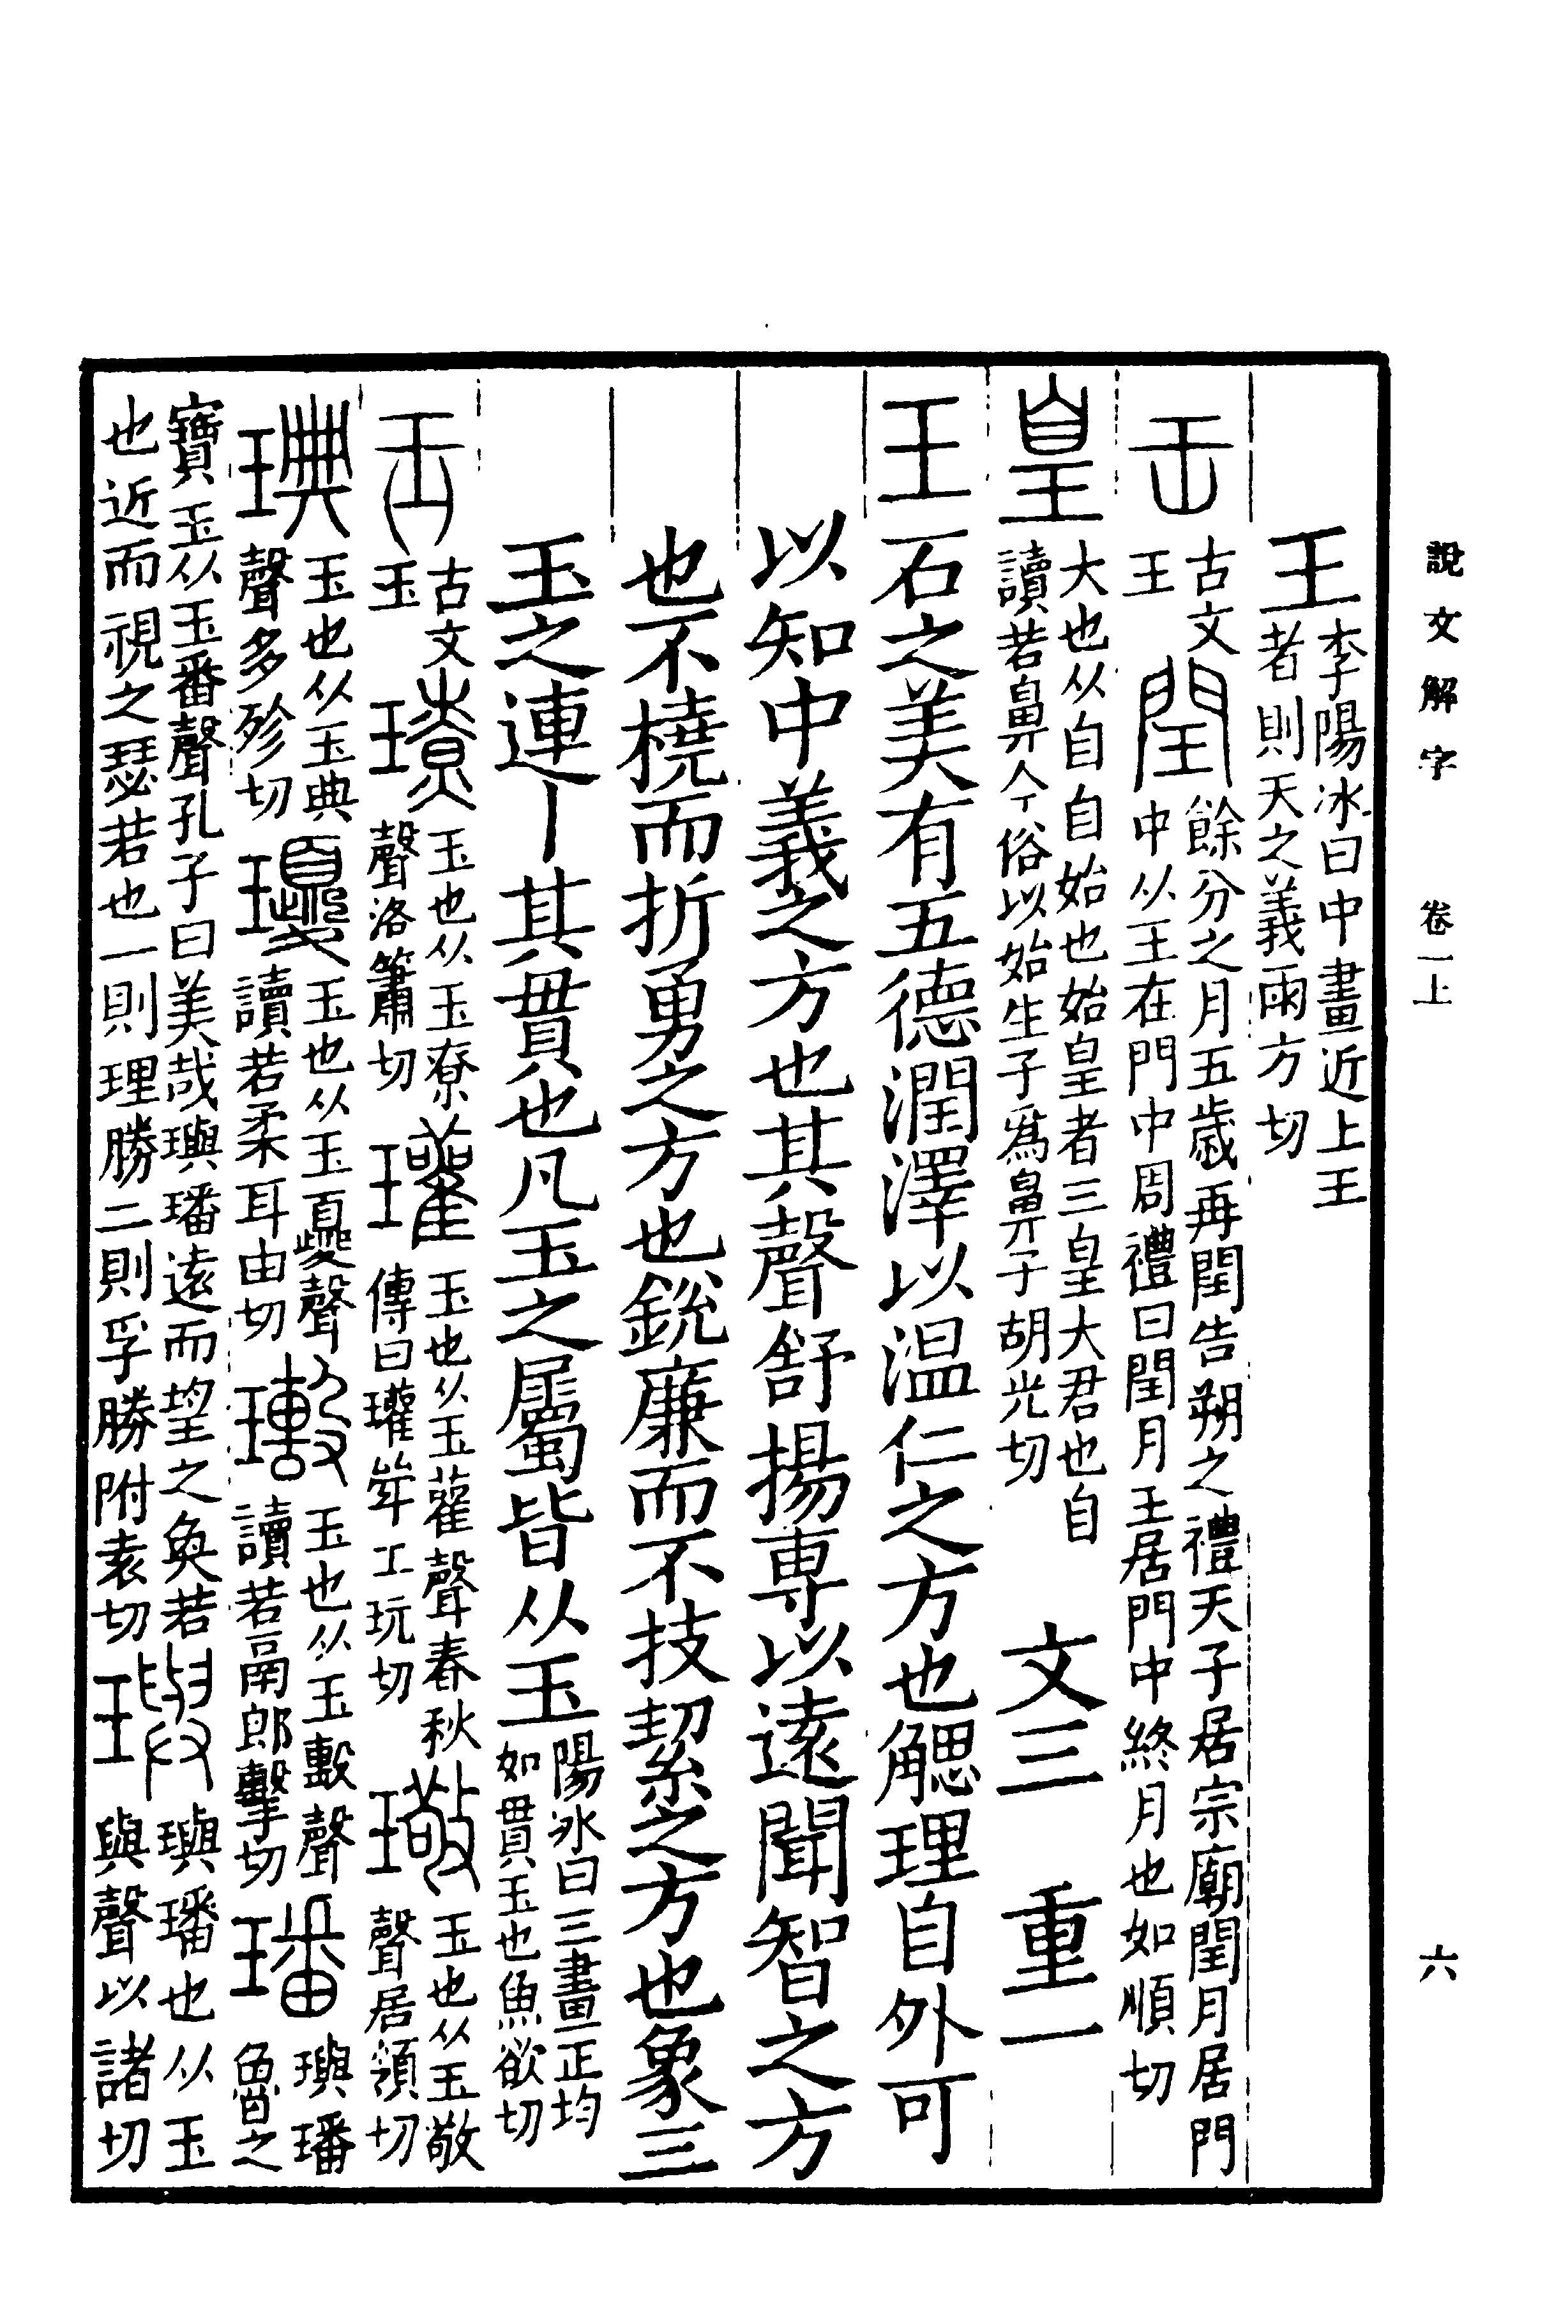 說文解字　卷一上　六
王李陽冰曰中畫近上王者則天之義雨方切
古文王閏餘分之月五歲再閏告朔之禮天子居宗廟閏月居門中从王在門中周禮曰閏月王居門中終月也如順切
皇大也从自自始也始皇者三皇大君也自讀若鼻今俗以始生子爲鼻子胡光切　文三　重一
王石之美有五德潤澤以温仁之方也䚡理自外可
以知中義之方也其聲舒揚専以遠聞智之方
也不橈而折勇之方也銳廉而不技絜之方也象三
玉之連丨其貫也凡玉之屬皆从玉陽冰曰三畫正均如貫玉也魚欲切
古文玉璙玉也从玉尞聲洛簫切瓘玉也从玉雚聲春秋傳曰瓘斝工玩切璥玉也从玉敬聲居領切
琠玉也从玉典聲多殄切瓇玉也从玉夒聲讀若柔耳由切玉也从玉毄聲讀若鬲郎擊切璠璵璠魯之
寶玉从玉番聲孔子曰美哉璵璠遠而望之奐若也近而視之瑟若也一則理勝二則孚勝附袁切璵璵璠也从玉與聲以諸切